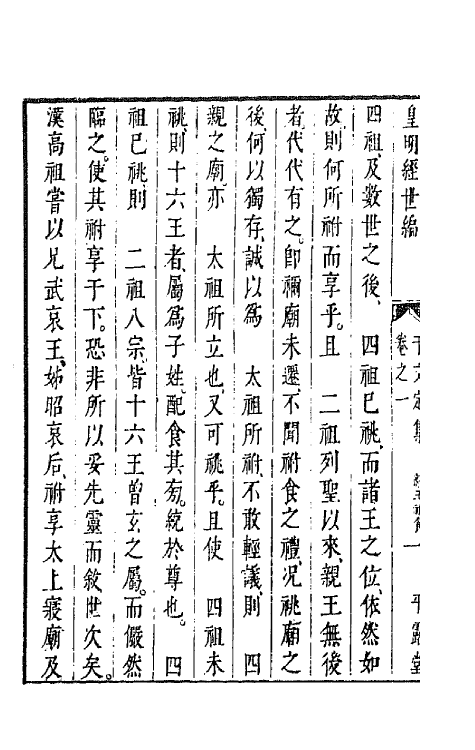 皇明經世編 卷之一 一 平露堂
四祖、及數世之後、 四祖已祧、而諸王之位、依然如
故、則何所祔而享乎。且 二祖列聖以來、親王無後
者、代代有之。卽禰廟未遷、不聞祔食之禮、况祧廟之
後、何以獨存、誠以爲 太祖所祔、不敢輕議、則 四
親之廟、亦 太祖所立也、又可祧乎。且使 四祖未
祧、則十六王者、屬爲子姓、配食其旁。統於尊也。 四
祖已祧、則 二祖八宗、皆十六王曾玄之屬。而儼然
臨之。使其祔享于下。恐非所以妥先靈而敘世次矣。
漢高祖嘗以兄武哀王、姊昭哀后、祔享太上寢廟及